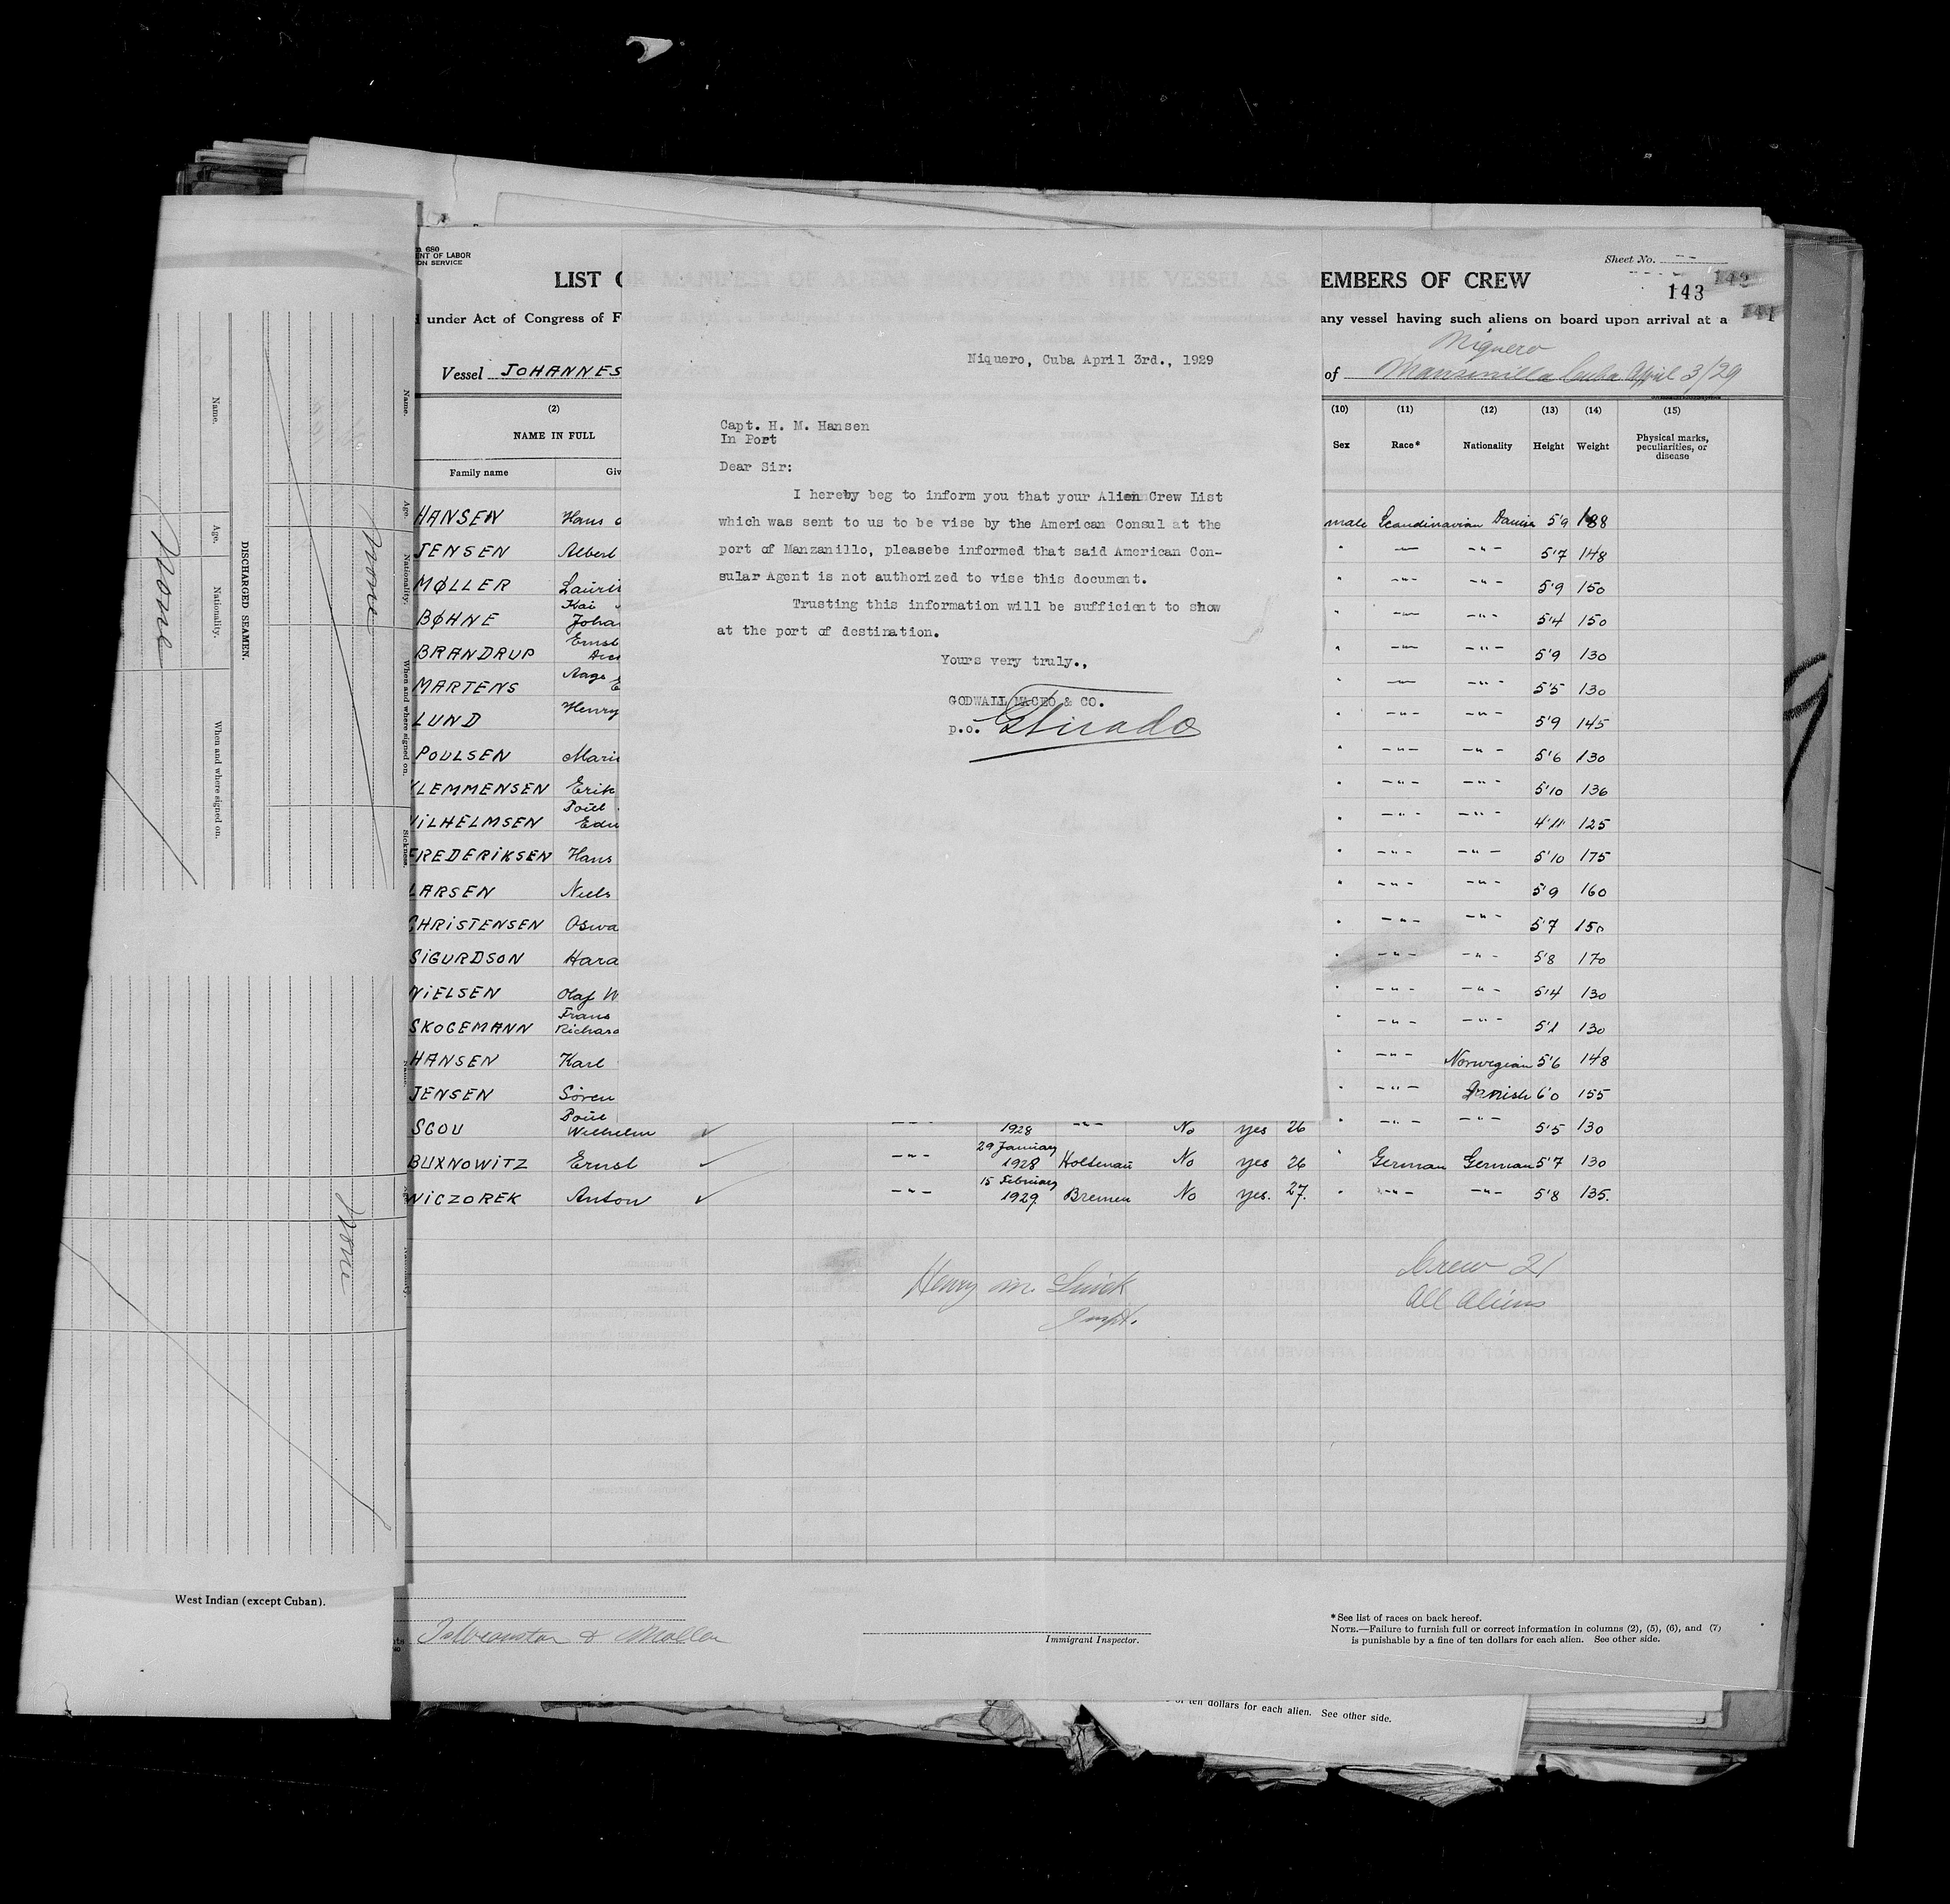 680
ENT OF LABOR
ON SERVICE
Sheet No.
LIST O
EMBERS OF CREW
143
under Act of Congress of F
any vessel having such aliens on board upon arrival at a
Niquero
Vessel JOHANNES
of Mansinilla Cuba April 3/29
Niquero, Cuba April 3rd., 1929
Capt. H. M. Hansen
In Port
Dear Sir:
I hereby beg to inform you that your Alien Crew List
which was sent to us to be vise by the American Consul at the
port of Manzanillo, pleasebe informed that said American Con-
sular Agent is not authorized to vise this document.
Trusting this information will be sufficient to show
at the port of destination.
Yours very truly.,
GODWALL MACEO & CO.
p.o.
(2)
NAME IN FULL
Family name Giv
(10) (11) (12) (13) (14) (15)
Sex Race* Nationality Height Weight Physical marks, peculiarities, or disease
HANSEN Hans male Scandinavian Danish 5'9 188
JENSEN Albert " —"— —"— 5'7 148
MØLLER " —"— —"— 5'9 150
BØHNE Kai Joha " —"— —"— 5'4 150
BRANDRUP Ernst " —"— —"— 5'9 130
MARTENS Aage " —"— —"— 5'5 130
LUND Henry " —"— —"— 5'9 145
POULSEN Mari " —"— —"— 5'6 130
KLEMMENSEN Erik " —"— —"— 5'10 136
VILHELMSEN Poul Edu " —"— —"— 4'11 125
FREDERIKSEN Hans " —"— —"— 5'10 175
LARSEN Niels " —"— —"— 5'9 160
CHRISTENSEN Oswa " —"— —"— 5'7 150
SIGURDSON Hara " —"— —"— 5'8 170
NIELSEN Olaf W " —"— —"— 5'4 130
SKOGEMANN Frans Richard " —"— —"— 5'1 130
HANSEN Karl " —"— Norwegian 5'6 148
JENSEN Sören " —"— Danish 6'0 155
SGOU Poul Wilhelm —"— 1928 —"— No yes 26 " —"— —"— 5'5 130
BUXNOWITZ Ernst —"— 29 January 1928 Holtenau No yes 26 " German German 5'7 130
WICZOREK Anton —"— 15 February 1929 Bremen No yes. 27. " —"— —"— 5'8 135.
Crew 21
All Aliens
Henry M.
Inspt.
Immigrant Inspector.
*See list of races on back hereof.
NOTE.—Failure to furnish full or correct information in columns (2), (5), (6), and (7)
is punishable by a fine of ten dollars for each alien. See other side.
of ten dollars for each alien. See other side.
DISCHARGED SEAMEN.
Name. Age. Nationality. When and where signed on.
None
Name. Age. Nationality. When and where signed on. Sickness.
None
None
West Indian (except Cuban).